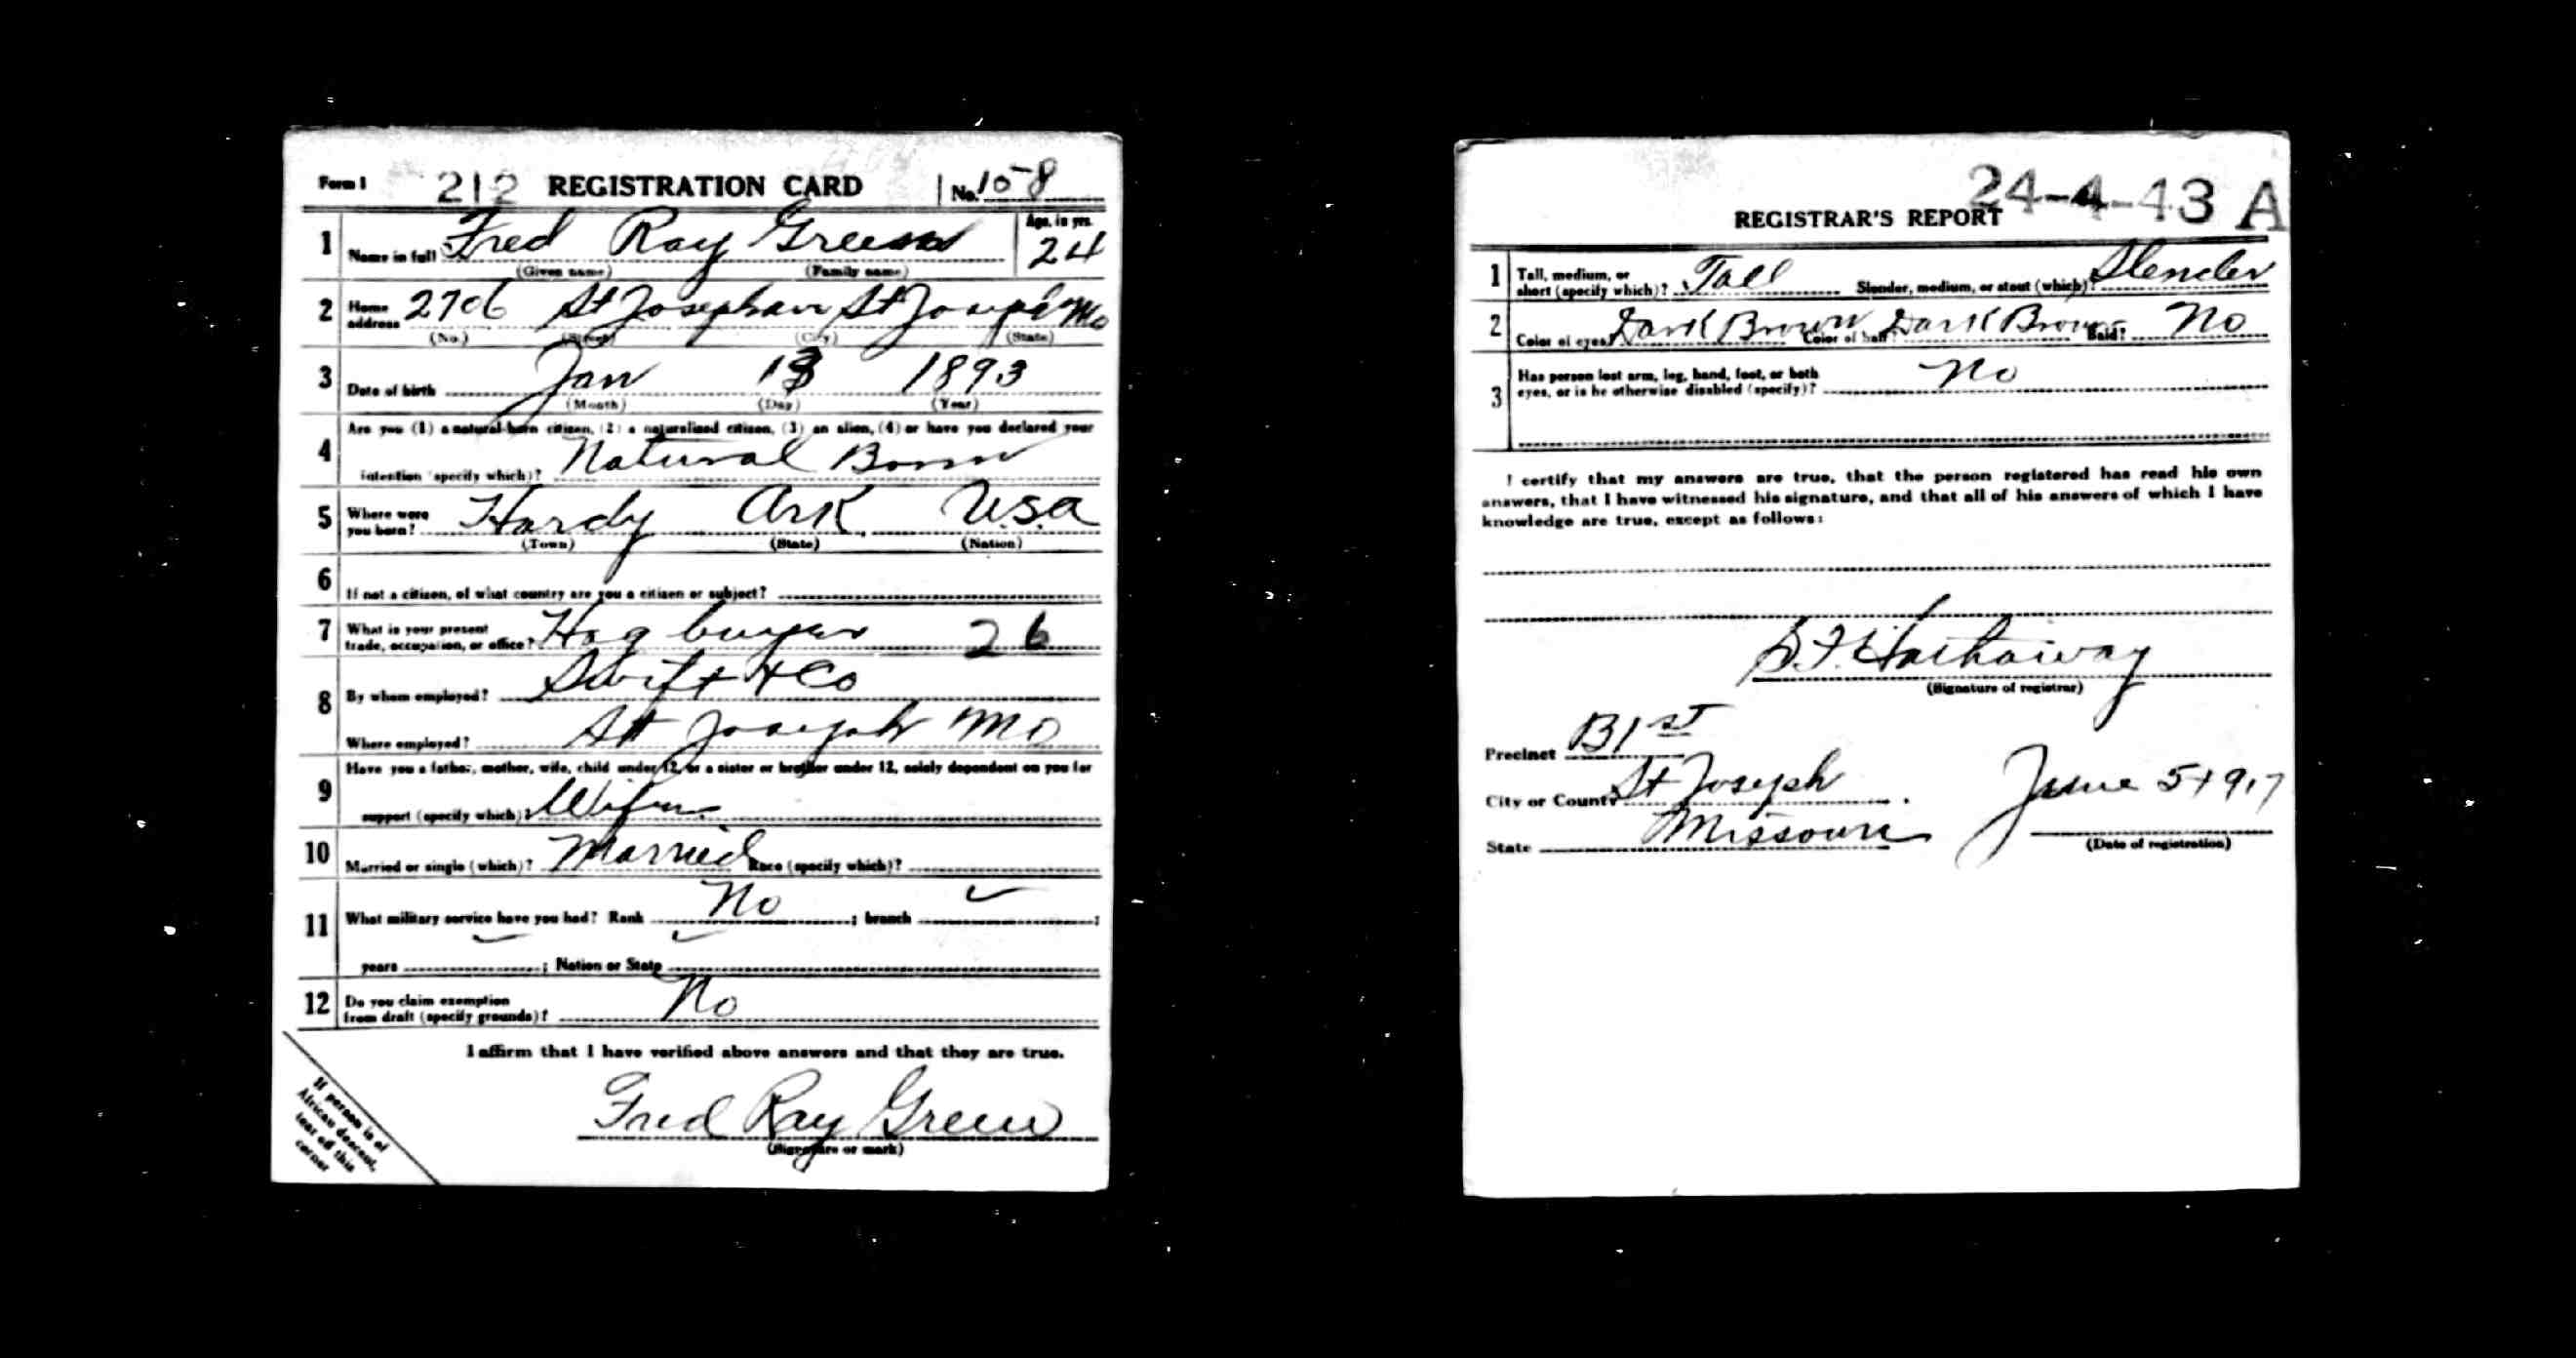 Form 1 212 REGISTRATION CARD No. 158
1 Name in full Fred Ray Green Age, in yrs. 24
(Given name) (Family name)
2 Home address 2706 St Joseph ave St Joseph Mo
(No.) (Street) (City) (State)
3 Date of birth Jan 13 1893
(Month) (Day) (Year)
4 Are you (1) a natural-born citizen, (2) a naturalized citizen, (3) an alien, (4) or have you declared your
intention (specify which)? Natural Born
5 Where were you born? Hardy Ark U.S.A
(Town) (State) (Nation)
6 If not a citizen, of what country are you a citizen or subject?
7 What is your present trade, occupation, or office? Hog buyer 26
8 By whom employed? Swift & Co
Where employed? St Joseph Mo
9 Have you a father, mother, wife, child under 12, or a sister or brother under 12, solely dependent on you for
support (specify which)? Wife
10 Married or single (which)? Married Race (specify which)?
11 What military service have you had? Rank No ; branch ;
years ; Nation or State
12 Do you claim exemption from draft (specify grounds)? No
I affirm that I have verified above answers and that they are true.
Fred Ray Green
(Signature or mark)
If person is of
African descent,
tear off this
corner
24-4-43 A
REGISTRAR'S REPORT
1 Tall, medium, or short (specify which)? Tall Slender, medium, or stout (which)? Slender
2 Color of eyes? Dark Brown Color of hair? Dark Brown Bald? No
3 Has person lost arm, leg, hand, foot, or both eyes, or is he otherwise disabled (specify)? No
I certify that my answers are true, that the person registered has read his own
answers, that I have witnessed his signature, and that all of his answers of which I have
knowledge are true, except as follows:
Hathaway
(Signature of registrar)
Precinct B 1st
City or County St Joseph June 5 1917
State Missouri (Date of registration)